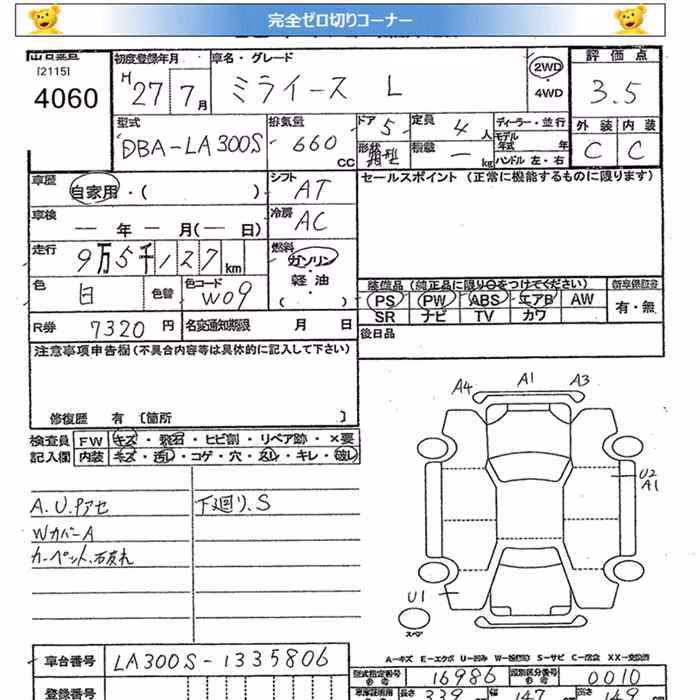 完全ゼロ切りコーナー
出品番号 初度登録年月 車名・グレード 評価点
[2115]
4060 H27年7月 ミライース L 2WD ・ 4WD 3.5
型式 排気量 ドア 定員 ディーラー・並行 外装 内装
DBA-LA300S 660CC 5 4人 モデル年式 年 C C
形状 積載 ー kg ハンドル 左・右
車歴 自家用・( ) シフト AT セールスポイント (正常に機能するものに限ります)
車検 ー年ー月(ー日) 冷房 AC
走行 9万5千127km 燃料 ガソリン・軽油・( )
色 白 色替 色コード W09 装備品 (純正品に限り○をつけてください) 新車保証書
PS PW ABS エアB AW 有・無
SR ナビ TV カワ
R券 7320円 名変通知期限 月 日 後日品
注意事項申告欄 (不具合内容等は具体的に記入して下さい)
修復歴 有 [箇所 ]
検査員 FW キズ・飛石・ヒビ割・リペア跡・×要
記入欄 内装 キズ・汚れ・コゲ・穴・スレ・キレ・破レ
A.U.アセ 下廻り.S
WカバーA
カーペット.破れ
A4 A1 A3
U2
A1
U1
スペア
A−キズ E−エクボ U−凹み W−補修跡 S−サビ C−腐食 XX−交換済
車台番号 LA300S-1335806 型式指定番号 16986 類別区分番号 0010
登録番号 長さ 339 幅 147 高さ 149